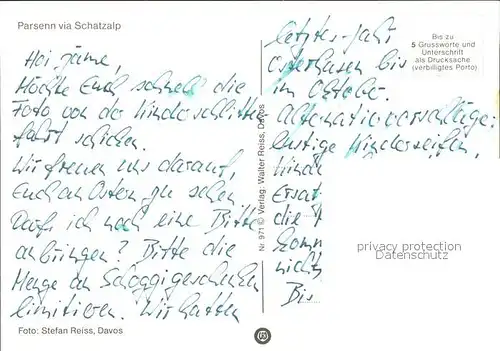 Parsenn via Schatzalp
Hoi zäme,
Möchte Euch schnell die
Foto von der Kinderschlitten-
fahrt schicken.
Wir freuen uns darauf,
Euch an Ostern zu sehen.
Darf ich noch eine Bitte
anbringen? Bitte die
Menge an Schoggigeschenken
limitieren. Wir hatten
Foto: Stefan Reiss, Davos
Nr. 971 © Verlag: Walter Reiss, Davos
letztes Jahr
Osterhasen bis
im Oktober.
Alternativvorschläge:
lustige Kinderseifen,
Kinde
Ersat
die
Komm
nicht
Bis
Bis zu
5 Grussworte und
Unterschrift
als Drucksache
(verbilligtes Porto)
privacy protection
Datenschutz